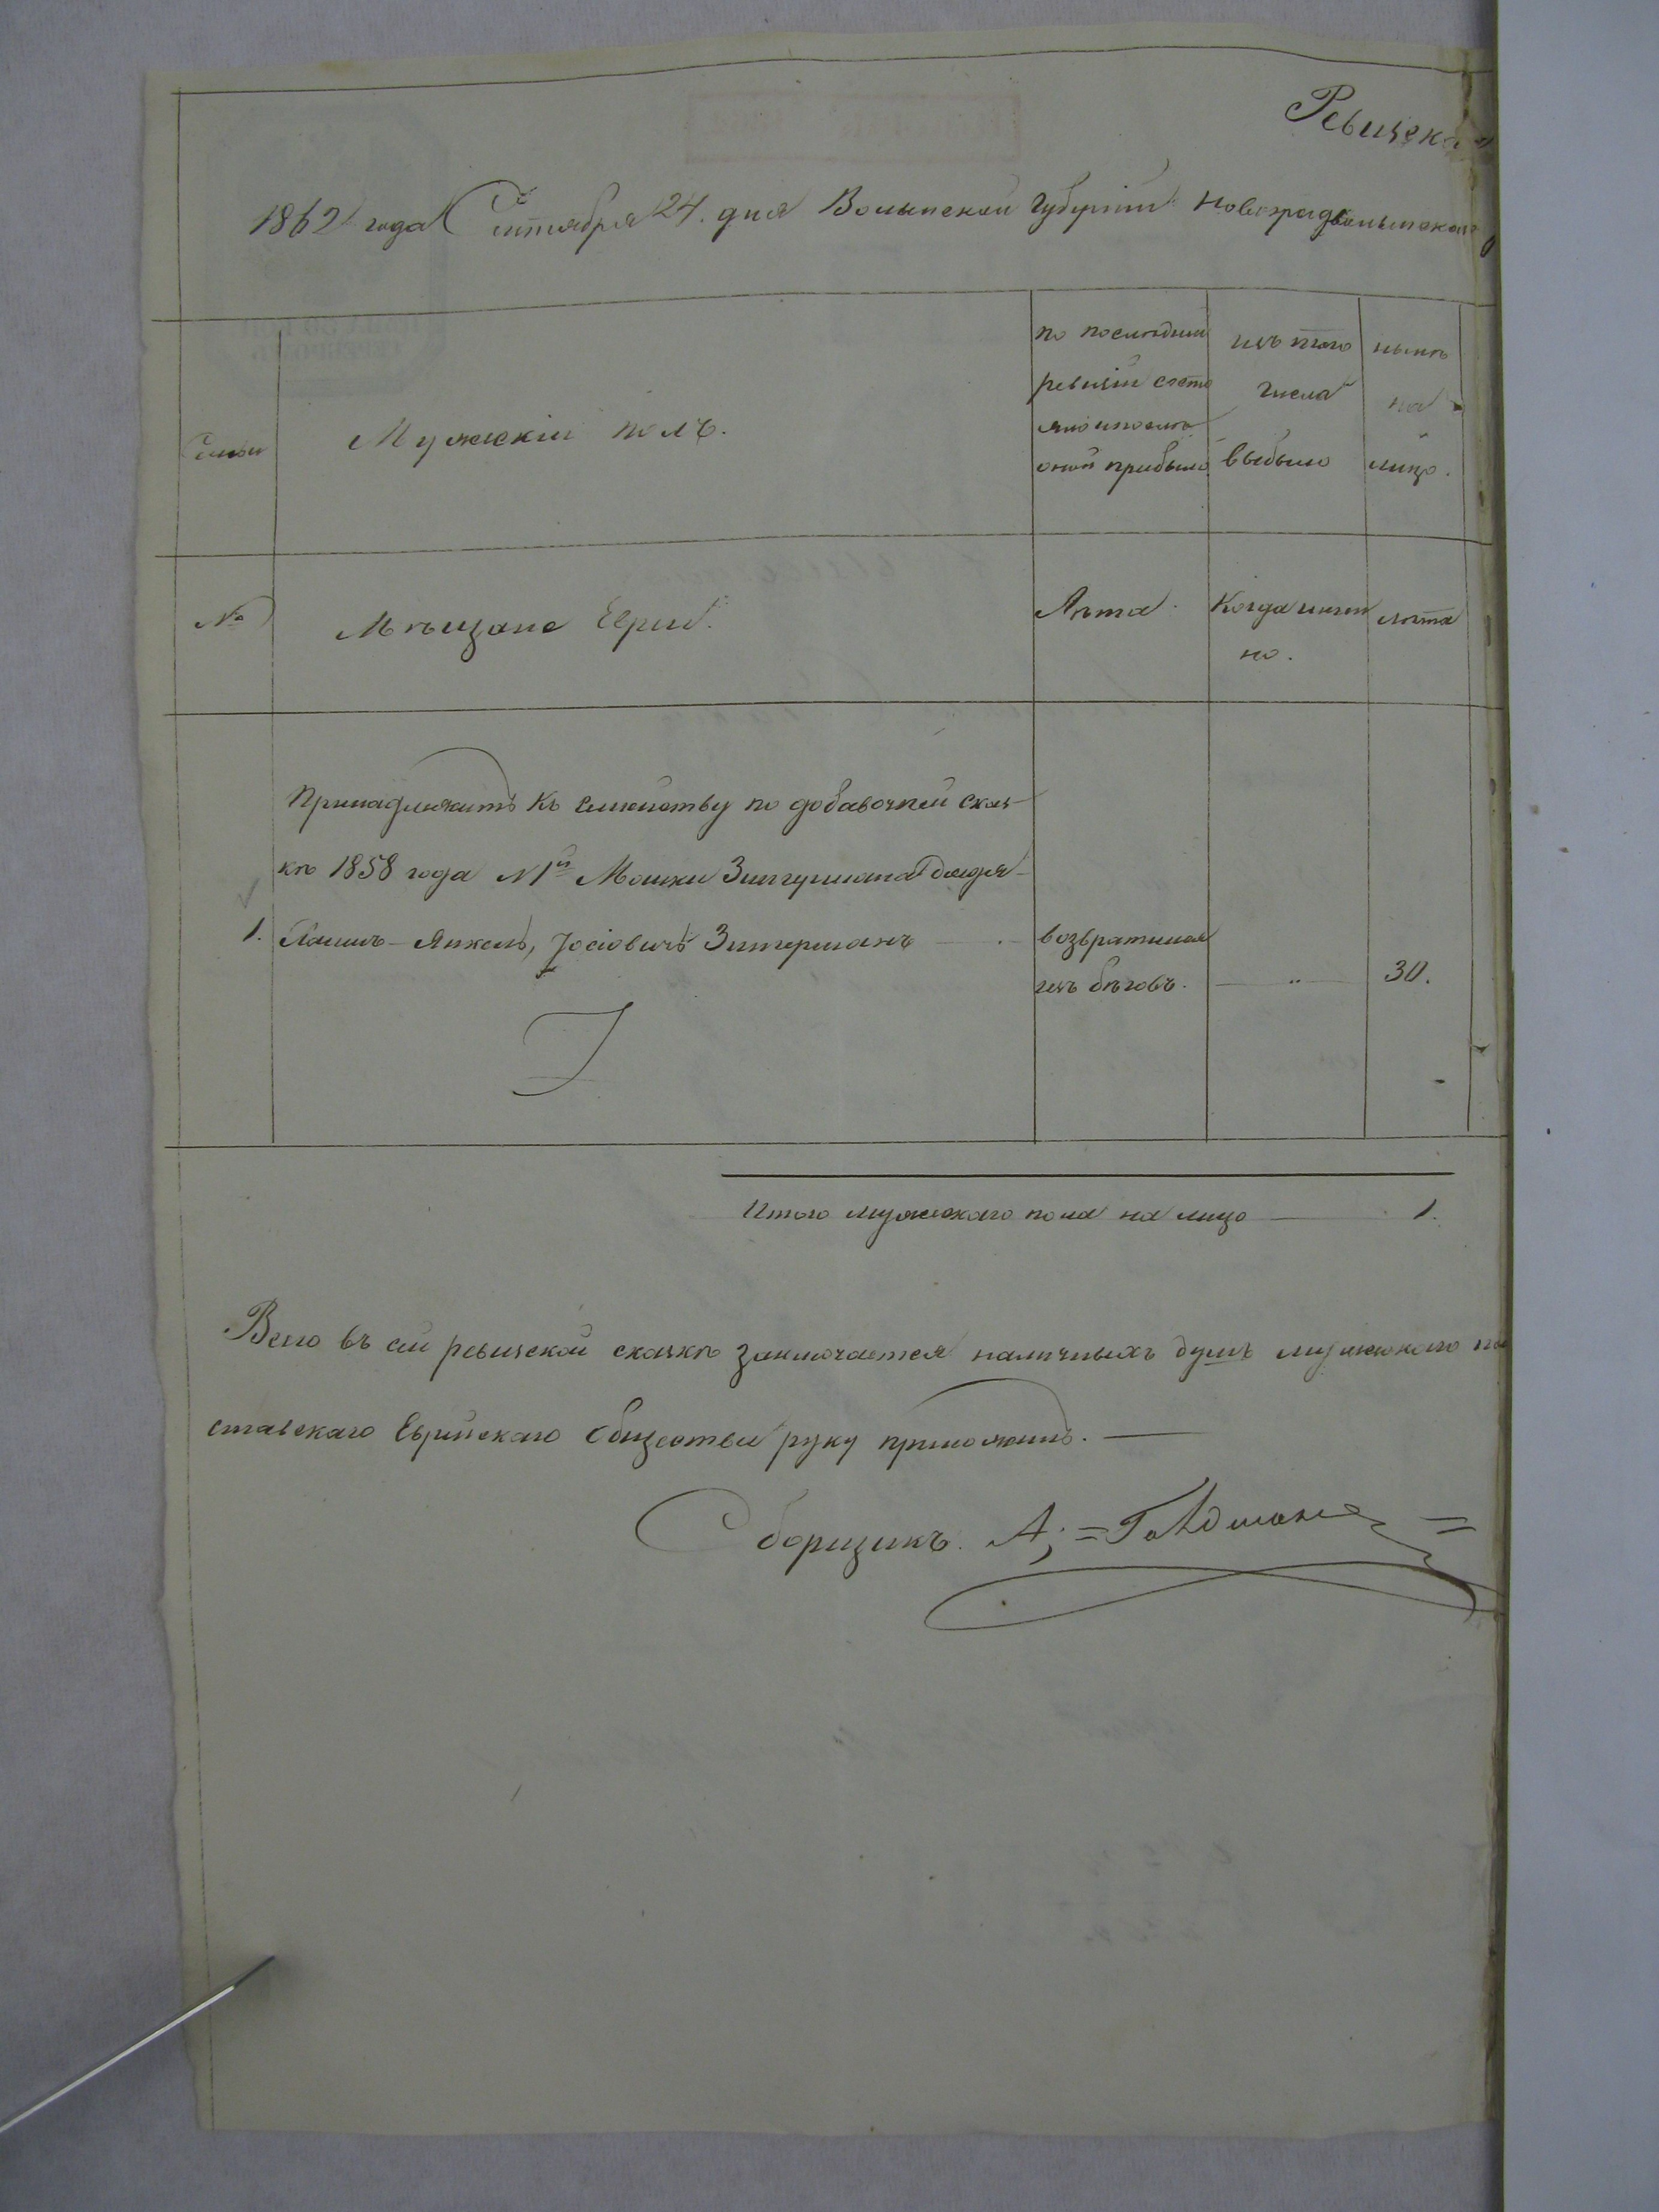 Ревизска
1862 года Сентября 24. дня Волынской Губерніи Новоградволынскаго
Семьи
Мужескій полъ.
по последней
ревизіи состо
яло и после
оной прибыло
изъ того
числа
выбыло
нынѣ
на
лицо.
№
Мѣщане Евреи.
Лѣта.
Когда имен
но.
лѣта
Принадлежитъ къ семейству по добавочной сказ-
кѣ 1858 года №1й Мошки Зингермана дядя
1. Янкель, Іосіовичъ Зингерманъ
возвратился
изъ бѣговъ.
"
30.
Итого мужескаго пола на лицо 1.
Всего въ сей ревизской сказкѣ заключается наличныхъ душъ мужескаго по
ставскаго Еврейскаго Общества руку приложилъ.
Сборщикъ. А;=Гольдманъ=